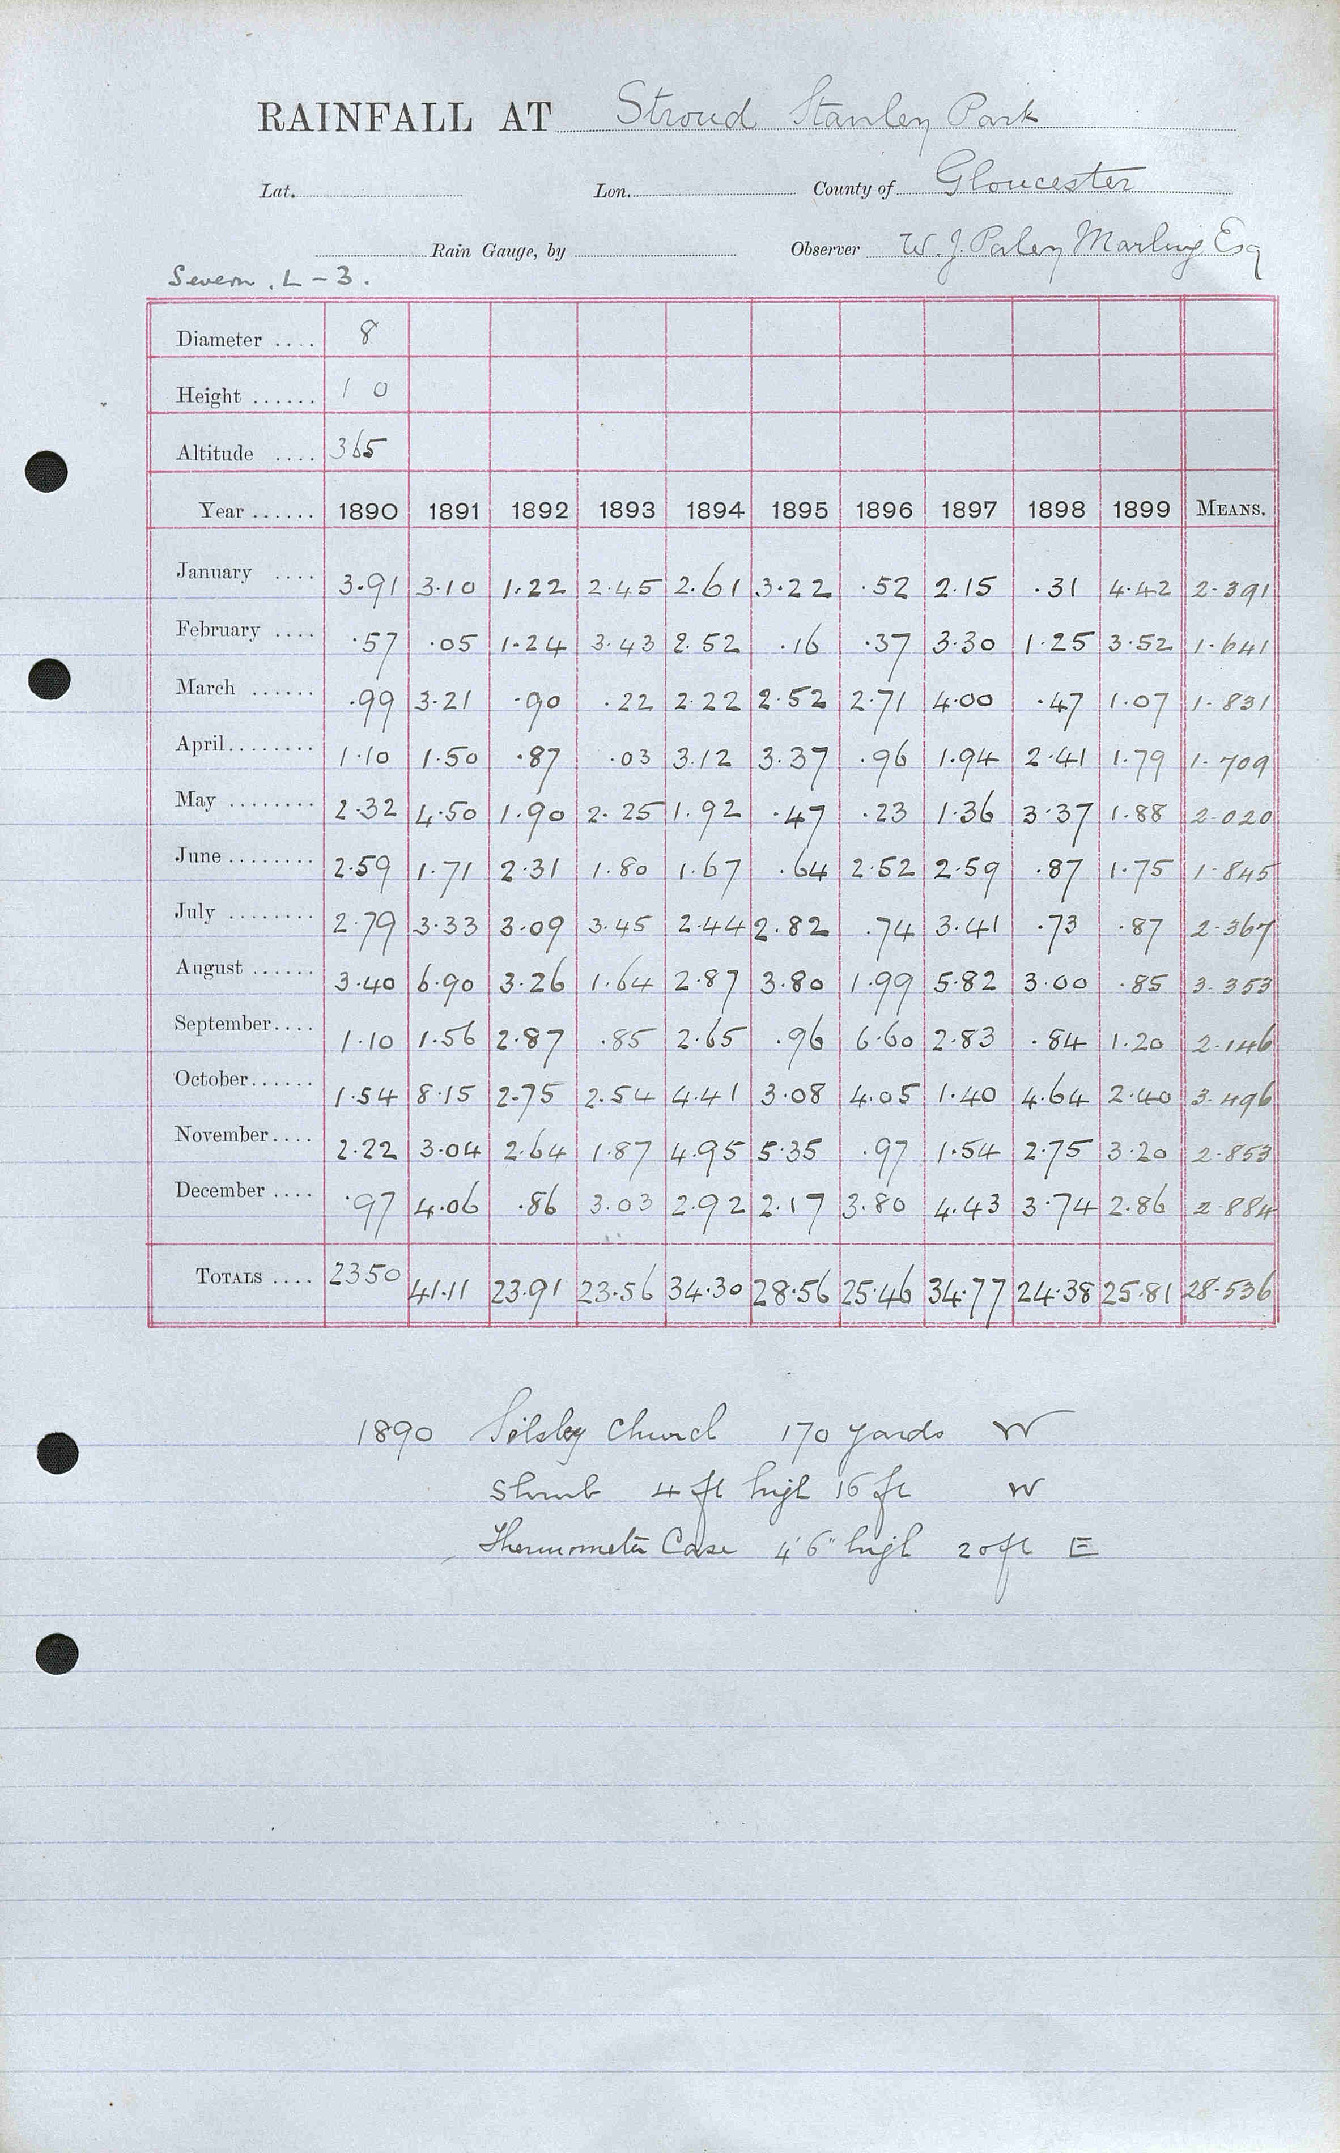 RAINFALL AT Stroud Stanley Park
Lat. Lon. County of Gloucester
Rain Gauge, by Observer W. J. Paley Marling Esq
Severn. L - 3.
Diameter .... 8
Height ...... 1 0
Altitude .... 365
Year ...... 1890 1891 1892 1893 1894 1895 1896 1897 1898 1899 MEANS.
January .... 3.91 3.10 1.22 2.45 2.61 3.22 .52 2.15 .31 4.42 2.391
February .... .57 .05 1.24 3.43 2.52 .16 .37 3.30 1.25 3.52 1.641
March ...... .99 3.21 .90 .22 2.22 2.52 2.71 4.00 .47 1.07 1.831
April........ 1.10 1.50 .87 .03 3.12 3.37 .96 1.94 2.41 1.79 1.709
May ........ 2.32 4.50 1.90 2.25 1.92 .47 .23 1.36 3.37 1.88 2.020
June ........ 2.59 1.71 2.31 1.80 1.67 .64 2.52 2.59 .87 1.75 1.845
July ........ 2.79 3.33 3.09 3.45 2.44 2.82 .74 3.41 .73 .87 2.367
August ...... 3.40 6.90 3.26 1.64 2.87 3.80 1.99 5.82 3.00 .85 3.353
September.... 1.10 1.56 2.87 .85 2.65 .96 6.60 2.83 .84 1.20 2.146
October...... 1.54 8.15 2.75 2.54 4.41 3.08 4.05 1.40 4.64 2.40 3.496
November.... 2.22 3.04 2.64 1.87 4.95 5.35 .97 1.54 2.75 3.20 2.853
December .... .97 4.06 .86 3.03 2.92 2.17 3.80 4.43 3.74 2.86 2.884
TOTALS .... 2350 41.11 23.91 23.56 34.30 28.56 25.46 34.77 24.38 25.81 28.536
1890 Selsley Church 170 yards W
Shrub 4 ft high 16 ft W
Thermometer Case 4'6" high 20 ft E